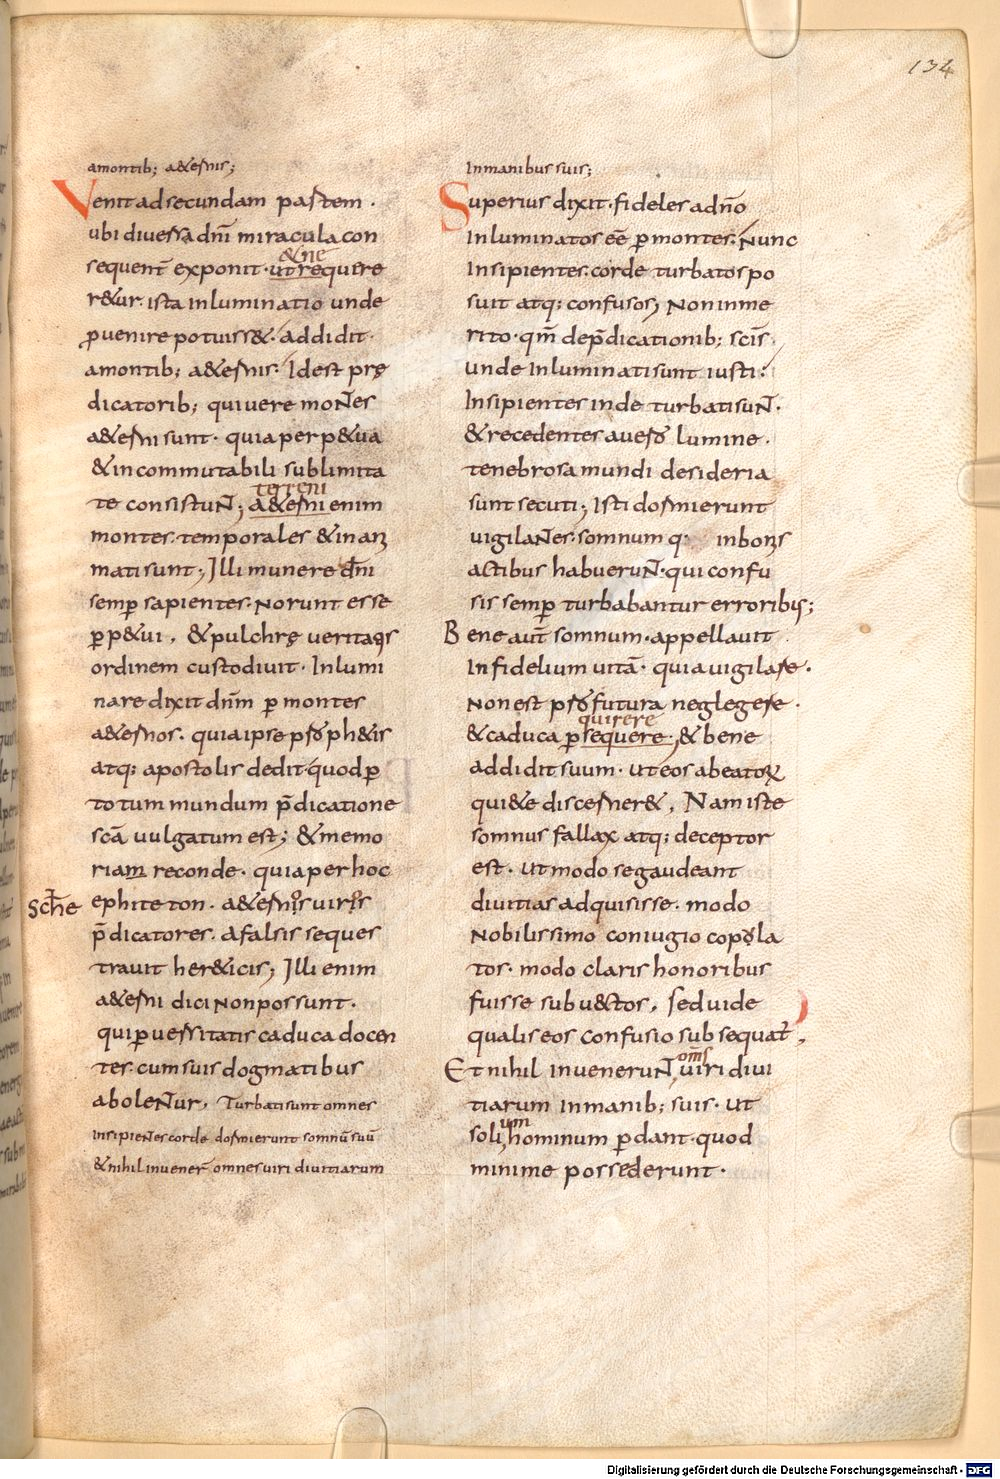 134
amontib; a&ernis;
Venit ad secundam partem.
ubi diversa dñi miracula con
sequent̄ exponit. ut requere
&ne
r&ur. ista inluminatio unde
ꝑvenire potuiss&. addidit.
amontib; a&ernis. Idest prę
dicatorib; qui vere montes
a&erni sunt. quia per p&ua
& incommutabili sublimita
te consistunt; a&erni enim
terreni
montes. temporales & inani
mati sunt; Illi munere dñi
semꝑ sapientes. norunt esse
ꝑp&ui, & pulchrę veritatis
ordinem custodivit. Inlumi
nare dixit dñm ꝑ montes
a&ernos. quia ipse pro ph&is
atq; apostolis dedit. quod ꝑ
totum mundum p̄dicatione
scā vulgatum est; & memo
riam reconde. quia per hoc
sche ephiteton. a&ernos viros
p̄dicatores. a falsis seques
travit her&icis; Illi enim
a&erni dici non possunt.
qui ꝑversitatis caduca docen
tes. cum suis dogmatibus
abolentur, Turbati sunt omnes
insipientes corde dormierunt somnū suū
& nihil invener̄ omnes viri divitiarum
In manibus suis;
Superius dixit. fideles ad nō
Inluminatos eē ꝑ montes. Nunc
Insipientes. corde turbatos po
suit atq; confusos; Non inme
rito. qm̄ de p̄dicationib; scīs.
unde Inluminati sunt iusti.
Insipientes inde turbati sunt.
& recedentes a vero lumine.
tenebrosa mundi desideria
sunt secuti; Isti dormierunt
vigilantes. somnum q; in bonis
actibus habuerunt. qui confu
sis semꝑ turbabantur erroribus;
Bene aut̄ somnum. appellavit
Infidelium vitā. quia vigilare.
Non est pro futura neglegere.
& caduca ꝑsequere; & bene
quirere
addidit suum. ut eos a beatorꝝ
qui&e discerner&, Nam iste
somnus fallax atq; deceptor
est. ut modo se gaudeant
divitias adquisisse. modo
nobilissimo coniugio copola
tos. modo claris honoribus
fuisse subv&tos, sed vide
qualis eos confusio subsequat̄,
Et nihil invenerunt, viri divi
om̄s
tiarum in manib; suis. ut
soli, hominum ꝑdant. quod
um
minime possederunt.
Digitalisierung gefördert durch die Deutsche Forschungsgemeinschaft - DFG